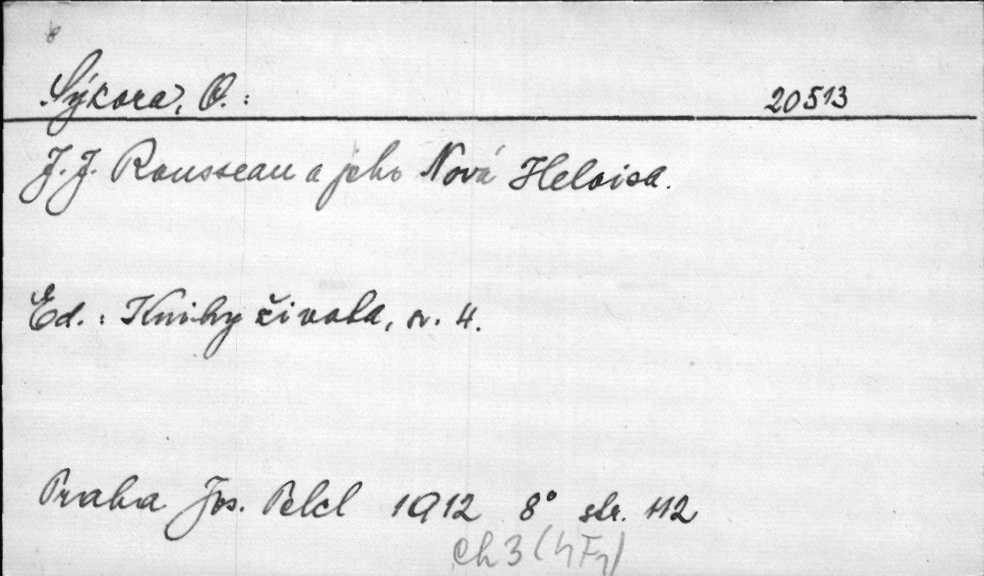 Sýkora, O.: 20513
J. J. Rousseau a jeho Nová Heloisa.
Ed.: Knihy života, sv. 4.
Praha Jos. Pelcl 1912 8° str. 112
Ch 3